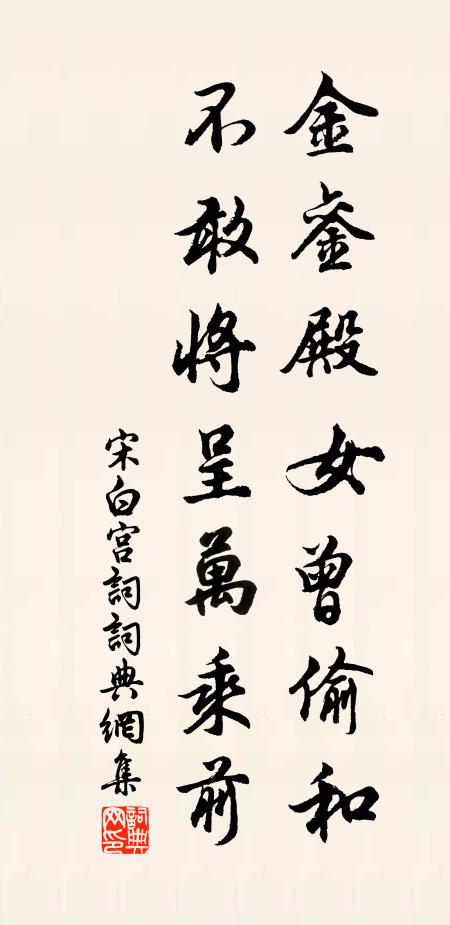 金銮殿女曾偷和
不敢將呈萬乘前
宋白宮詞詞典網集
詞典
网印